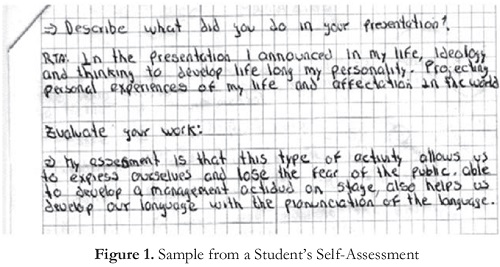 ⇒ Describe what did you do in your presentation?.
RTA: In the presentation I announced in my life, ideology
and thinking to develop life long my personality. Projecting
personal experiences of my life and affectation in the world
Evaluate your work:
⇒ My assesment is that this type of activity allows us
to express ourselves and lose the fear of the public. able
to develop a management actidud on stage, also helps us
develop our language with the pronunciation of the language.
Figure 1. Sample from a Student's Self-Assessment